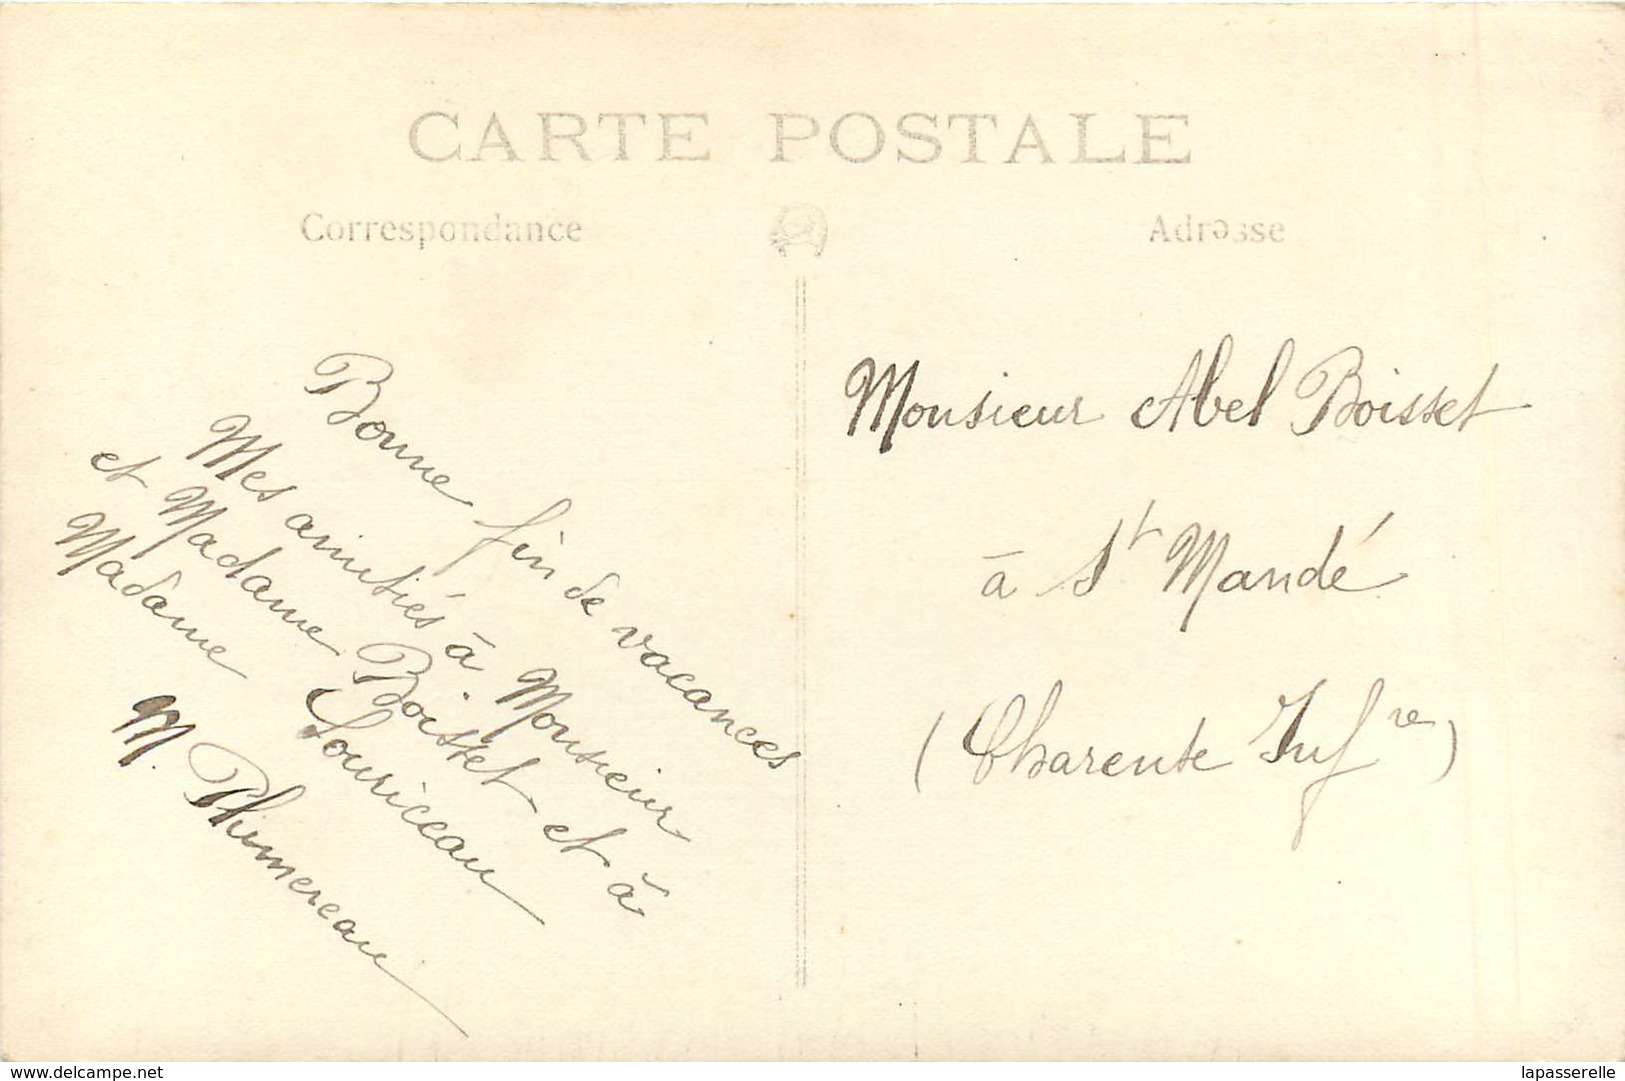 CARTE POSTALE
Correspondance
Adresse
Bonne fin de vacances
Mes amitiés à Monsieur
et Madame Boisset et à
Madame Souriceau
M. Plumereau
Monsieur Abel Boisset
à St Mandé
(Charente Infre)
www.delcampe.net
lapasserelle